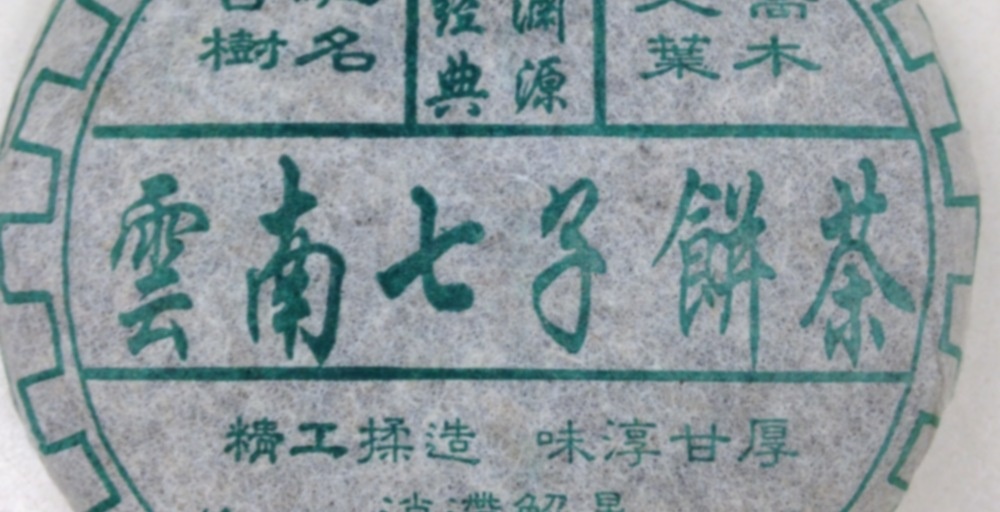 樹 名 經典 淵源 葉 喬木
雲南七子餅茶
精工揉造 味淳甘厚
消滯解